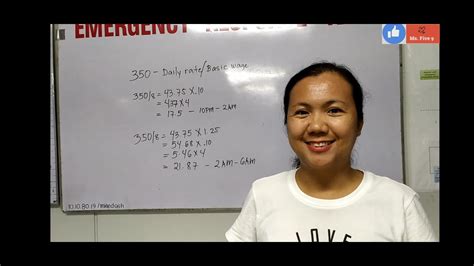 EMERGENCY
Ms. Five 9
350 - Daily rate/Basic wage
350/8 = 43.75 X .10
= 437 X 4
= 17.5 - 10PM - 2AM
350/8 = 43.75 X 1.25
= 54.68 X .10
= 5.46 X 4
= 21.87 - 2AM - 6AM
LOVE